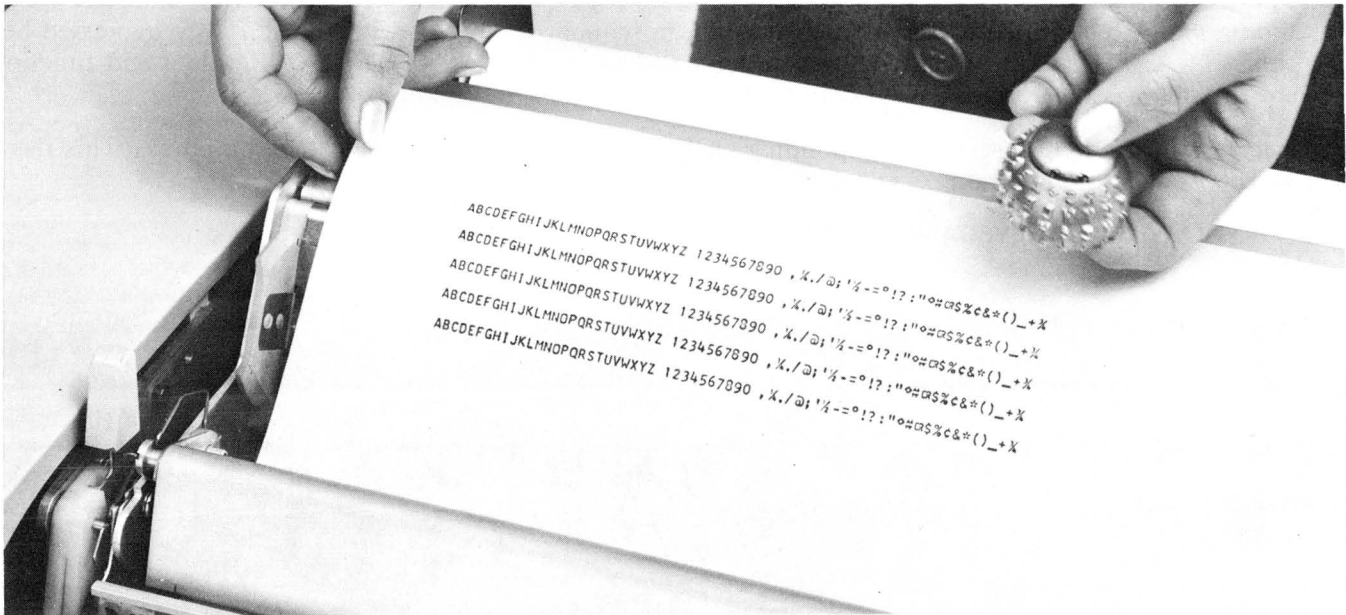 ABCDEFGHIJKLMNOPQRSTUVWXYZ 1234567890 ,¼./@;'½-=°!?:"⋄⌗¤$%¢&*()_+¾
ABCDEFGHIJKLMNOPQRSTUVWXYZ 1234567890 ,¼./@;'½-=°!?:"⋄⌗¤$%¢&*()_+¾
ABCDEFGHIJKLMNOPQRSTUVWXYZ 1234567890 ,¼./@;'½-=°!?:"⋄⌗¤$%¢&*()_+¾
ABCDEFGHIJKLMNOPQRSTUVWXYZ 1234567890 ,¼./@;'½-=°!?:"⋄⌗¤$%¢&*()_+¾
ABCDEFGHIJKLMNOPQRSTUVWXYZ 1234567890 ,¼./@;'½-=°!?:"⋄⌗¤$%¢&*()_+¾